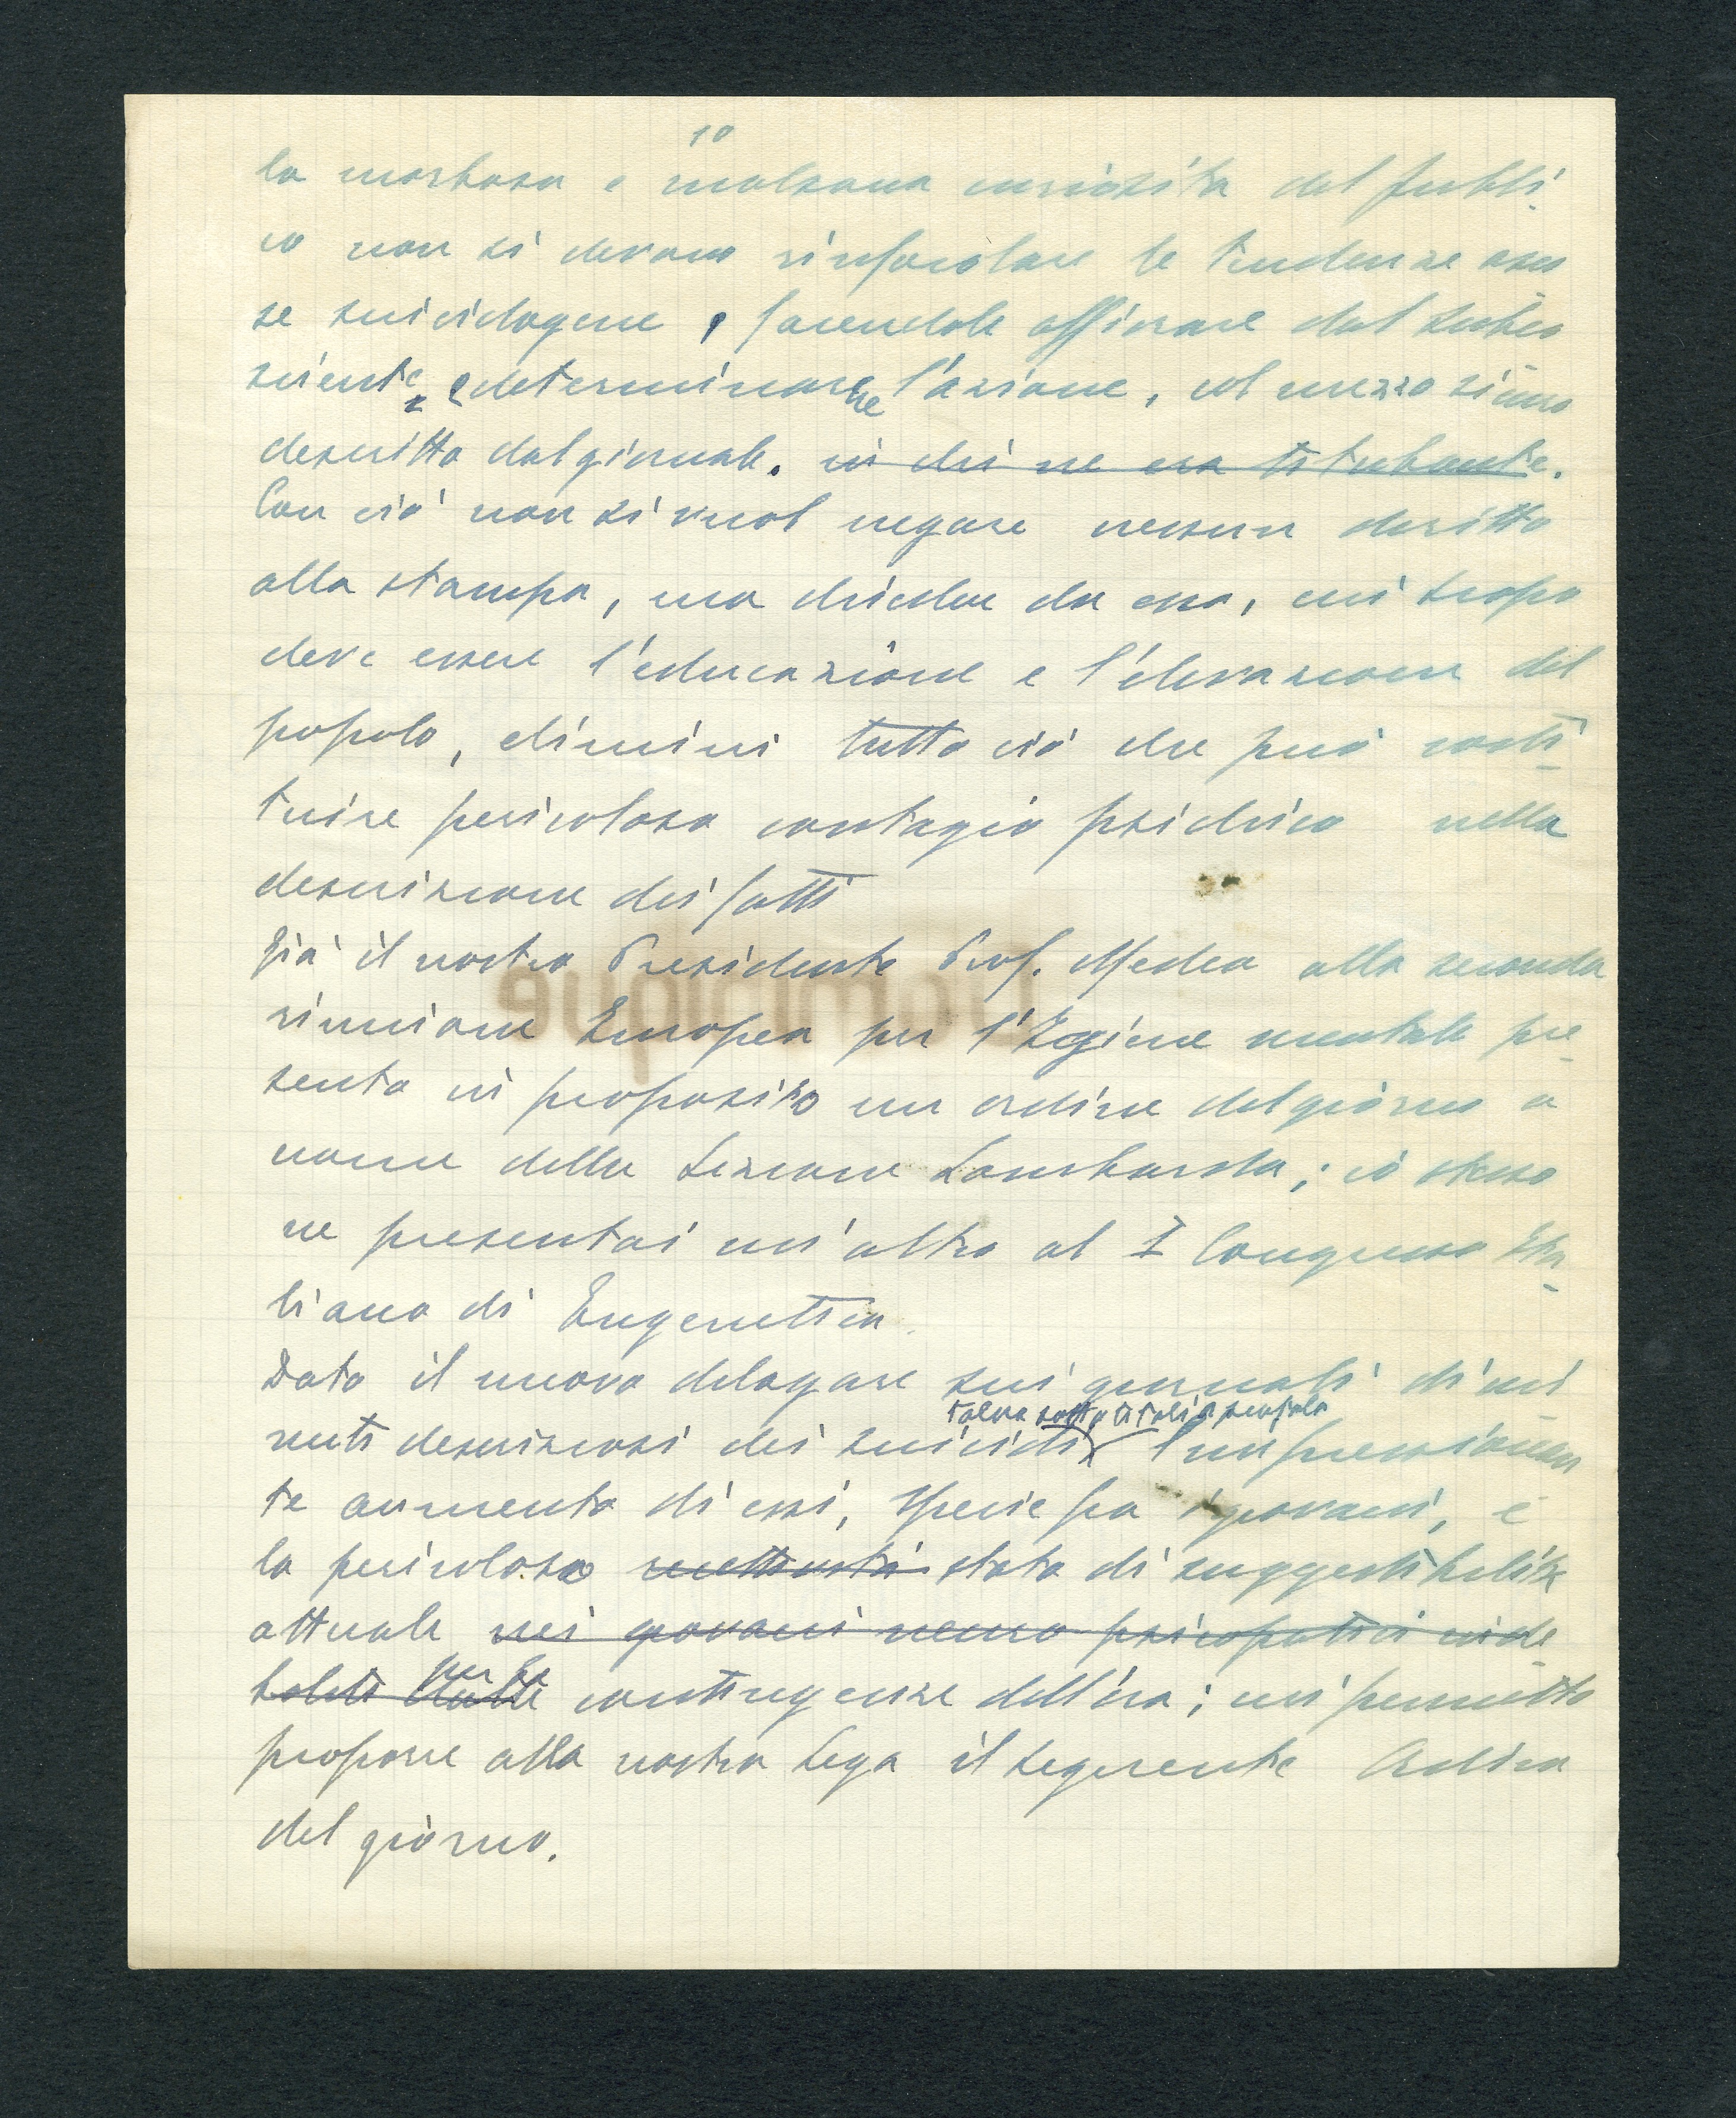 10
la morbosa e malsana curiosità del pubbli-
co non si devono rinfocolare le tendenze asco-
se suicidogene, facendole affiorare dal subco-
sciente, e determinarne l'azione, col mezzo
descritto dal giornale. in chi ne era titubante.
Con ciò non si vuol negare nessun diritto
alla stampa, ma chiedere da essa, cui scopo
deve essere l'educazione e l'elevazione del
popolo, elimini tutto ciò che può costi-
tuire pericoloso contagio psichico nella
descrizione dei fatti
Già il nostro Presidente Prof. Medea alla seconda
riunione Europea per l'Igiene mentale pre-
sentò in proposito un ordine del giorno a
nome della Sezione Lombarda; io stesso
ne presentai un'altro al I Congresso Ita-
liano di Eugenetica.
Dato il nuovo dilagare sui giornali di
talora sotto titoli a scatola
descrizioni dei suicidi l'impressionan
te aumento di essi, specie fra i giovani, e
lo pericoloso recettività stato di suggestibilità
attuale nei giovani nemo psicopatici inde-
boliti dalle per le contingenze dell'ora; mi permetto
proporre alla nostra Lega il seguente Ordine
del giorno.